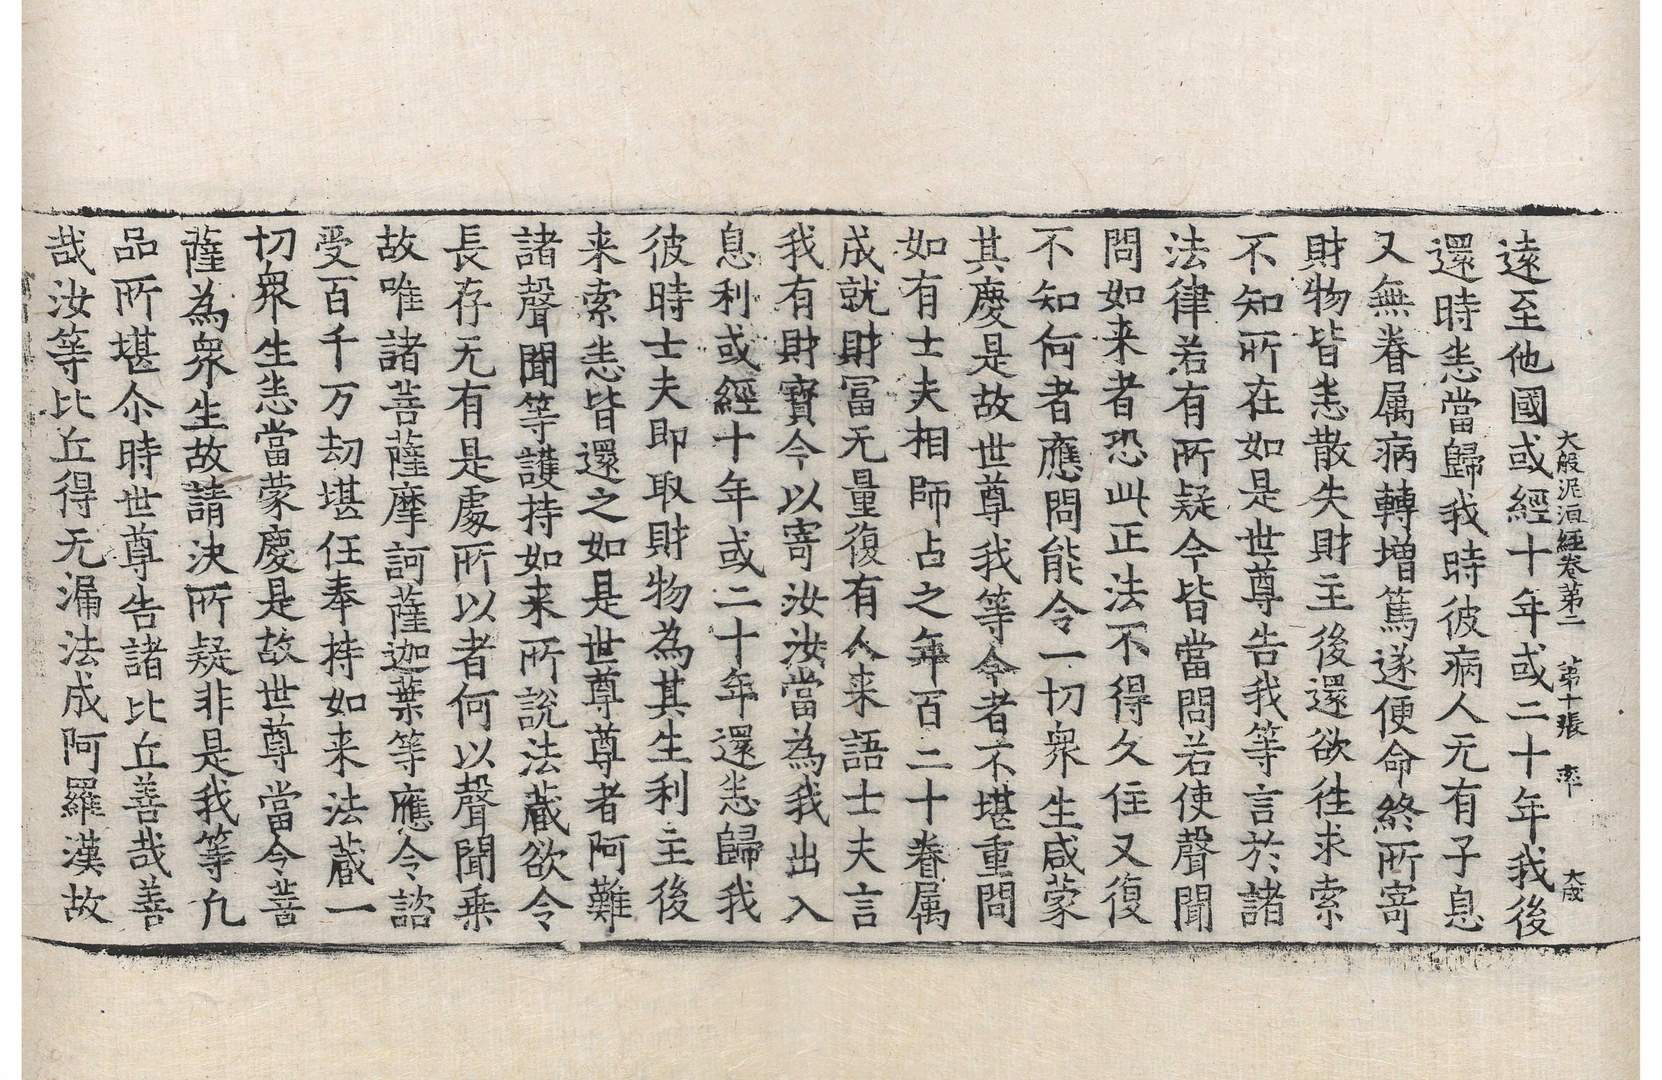 大般泥洹經卷第二　第十張　率　大成
遠至他國或經十年或二十年我後
還時悉當歸我時彼病人无有子息
又無眷属病轉增篤遂便命終所寄
財物皆悉散失財主後還欲往求索
不知所在如是世尊告我等言於諸
法律若有所疑今皆當問若使聲聞
問如来者恐此正法不得久住又復
不知何者應問能令一切衆生咸蒙
其慶是故世尊我等今者不堪重問
如有士夫相師占之年百二十眷属
成就財冨无量復有人来語士夫言
我有財寶今以寄汝汝當為我出入
息利或經十年或二十年還悉歸我
彼時士夫即取財物為其生利主後
来索悉皆還之如是世尊尊者阿難
諸聲聞等護持如来所說法藏欲令
長存无有是處所以者何以聲聞乗
故唯諸菩薩摩訶薩迦葉等應令諮
受百千万劫堪任奉持如来法蔵一
切衆生悉當蒙慶是故世尊當令菩
薩為衆生故請決所疑非是我等凡
品所堪尒時世尊告諸比丘善哉善
哉汝等比丘得无漏法成阿羅漢故